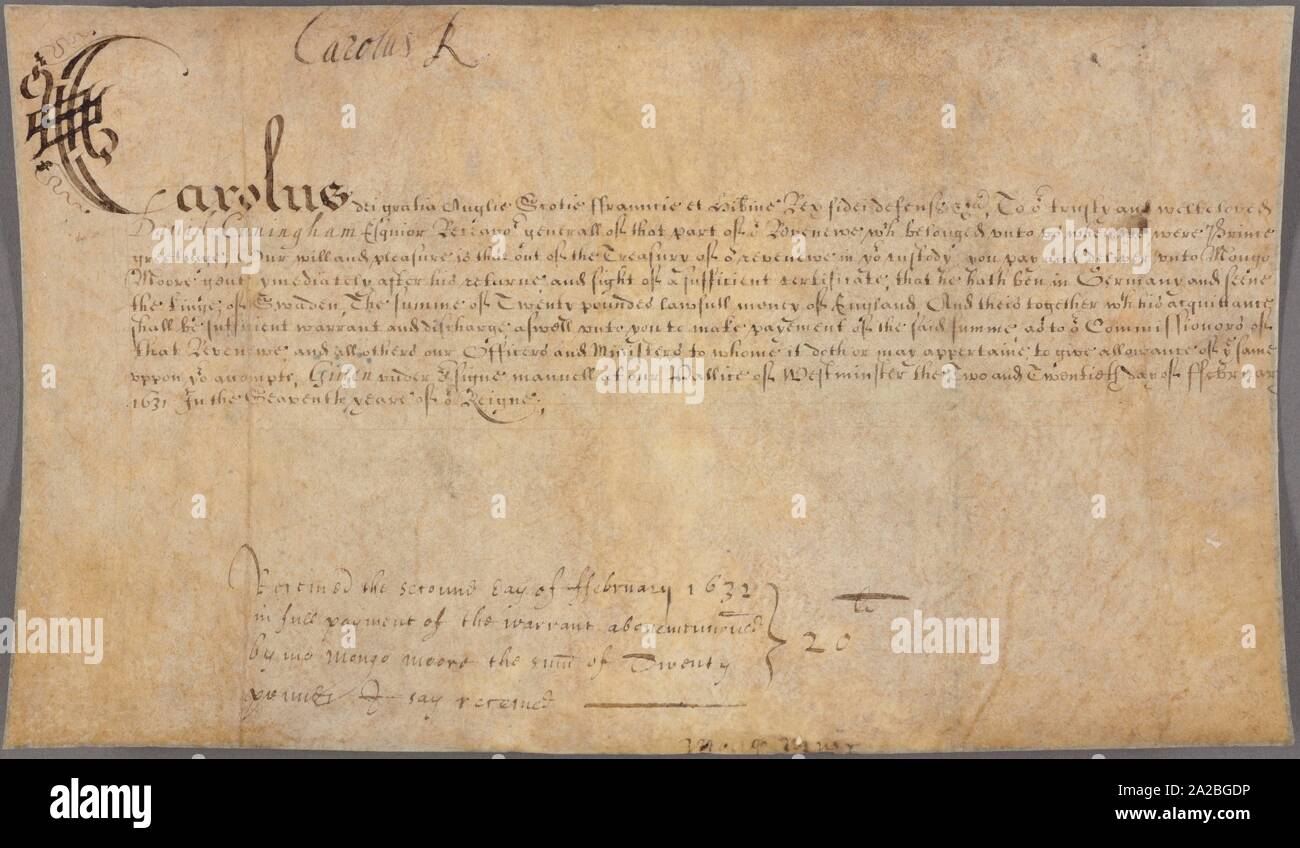 Carolus R
Carolus dei gratia Anglie Scotie ffrauncie et Hibnie Rex fidei defensor &c, To or trusty and welbeloved
David Cuningham Esquior Receavor generall of that part of or Revenewe wch belonged unto us when we were Prince
greeting, Our will and pleasure is that out of the Treasury of or revenewe in yor custody you pay and deliver unto Mongo
Moore gent ymediately after his returne, and sight of a sufficient certificate, that he hath ben in Germany and seene
the Kinge of Swaden, The summe of Twenty poundes lawfull money of England. And theis together wth his acquittance
shalbe sufficient warrant and discharge aswell unto you to make payement of the said summe, as to or Commissionors of
that Revenewe, and all others our Officers and Ministers to whome it doth or may appertaine to give allowance of ye same
uppon yor accompte, Given under or signe manuell at our Pallice of Westminster the Two and Twentieth day of ffebruary
1631 In the Seaventh yeare of or Reigne,
Received the second day of ffebruary 1632
in full payment of the warrant abovemencioned
by me Mongo Moore the sum of Twenty
poundes I say received
li
20
alamy
a
alamy
Image ID: 2A2BGDP
www.alamy.com